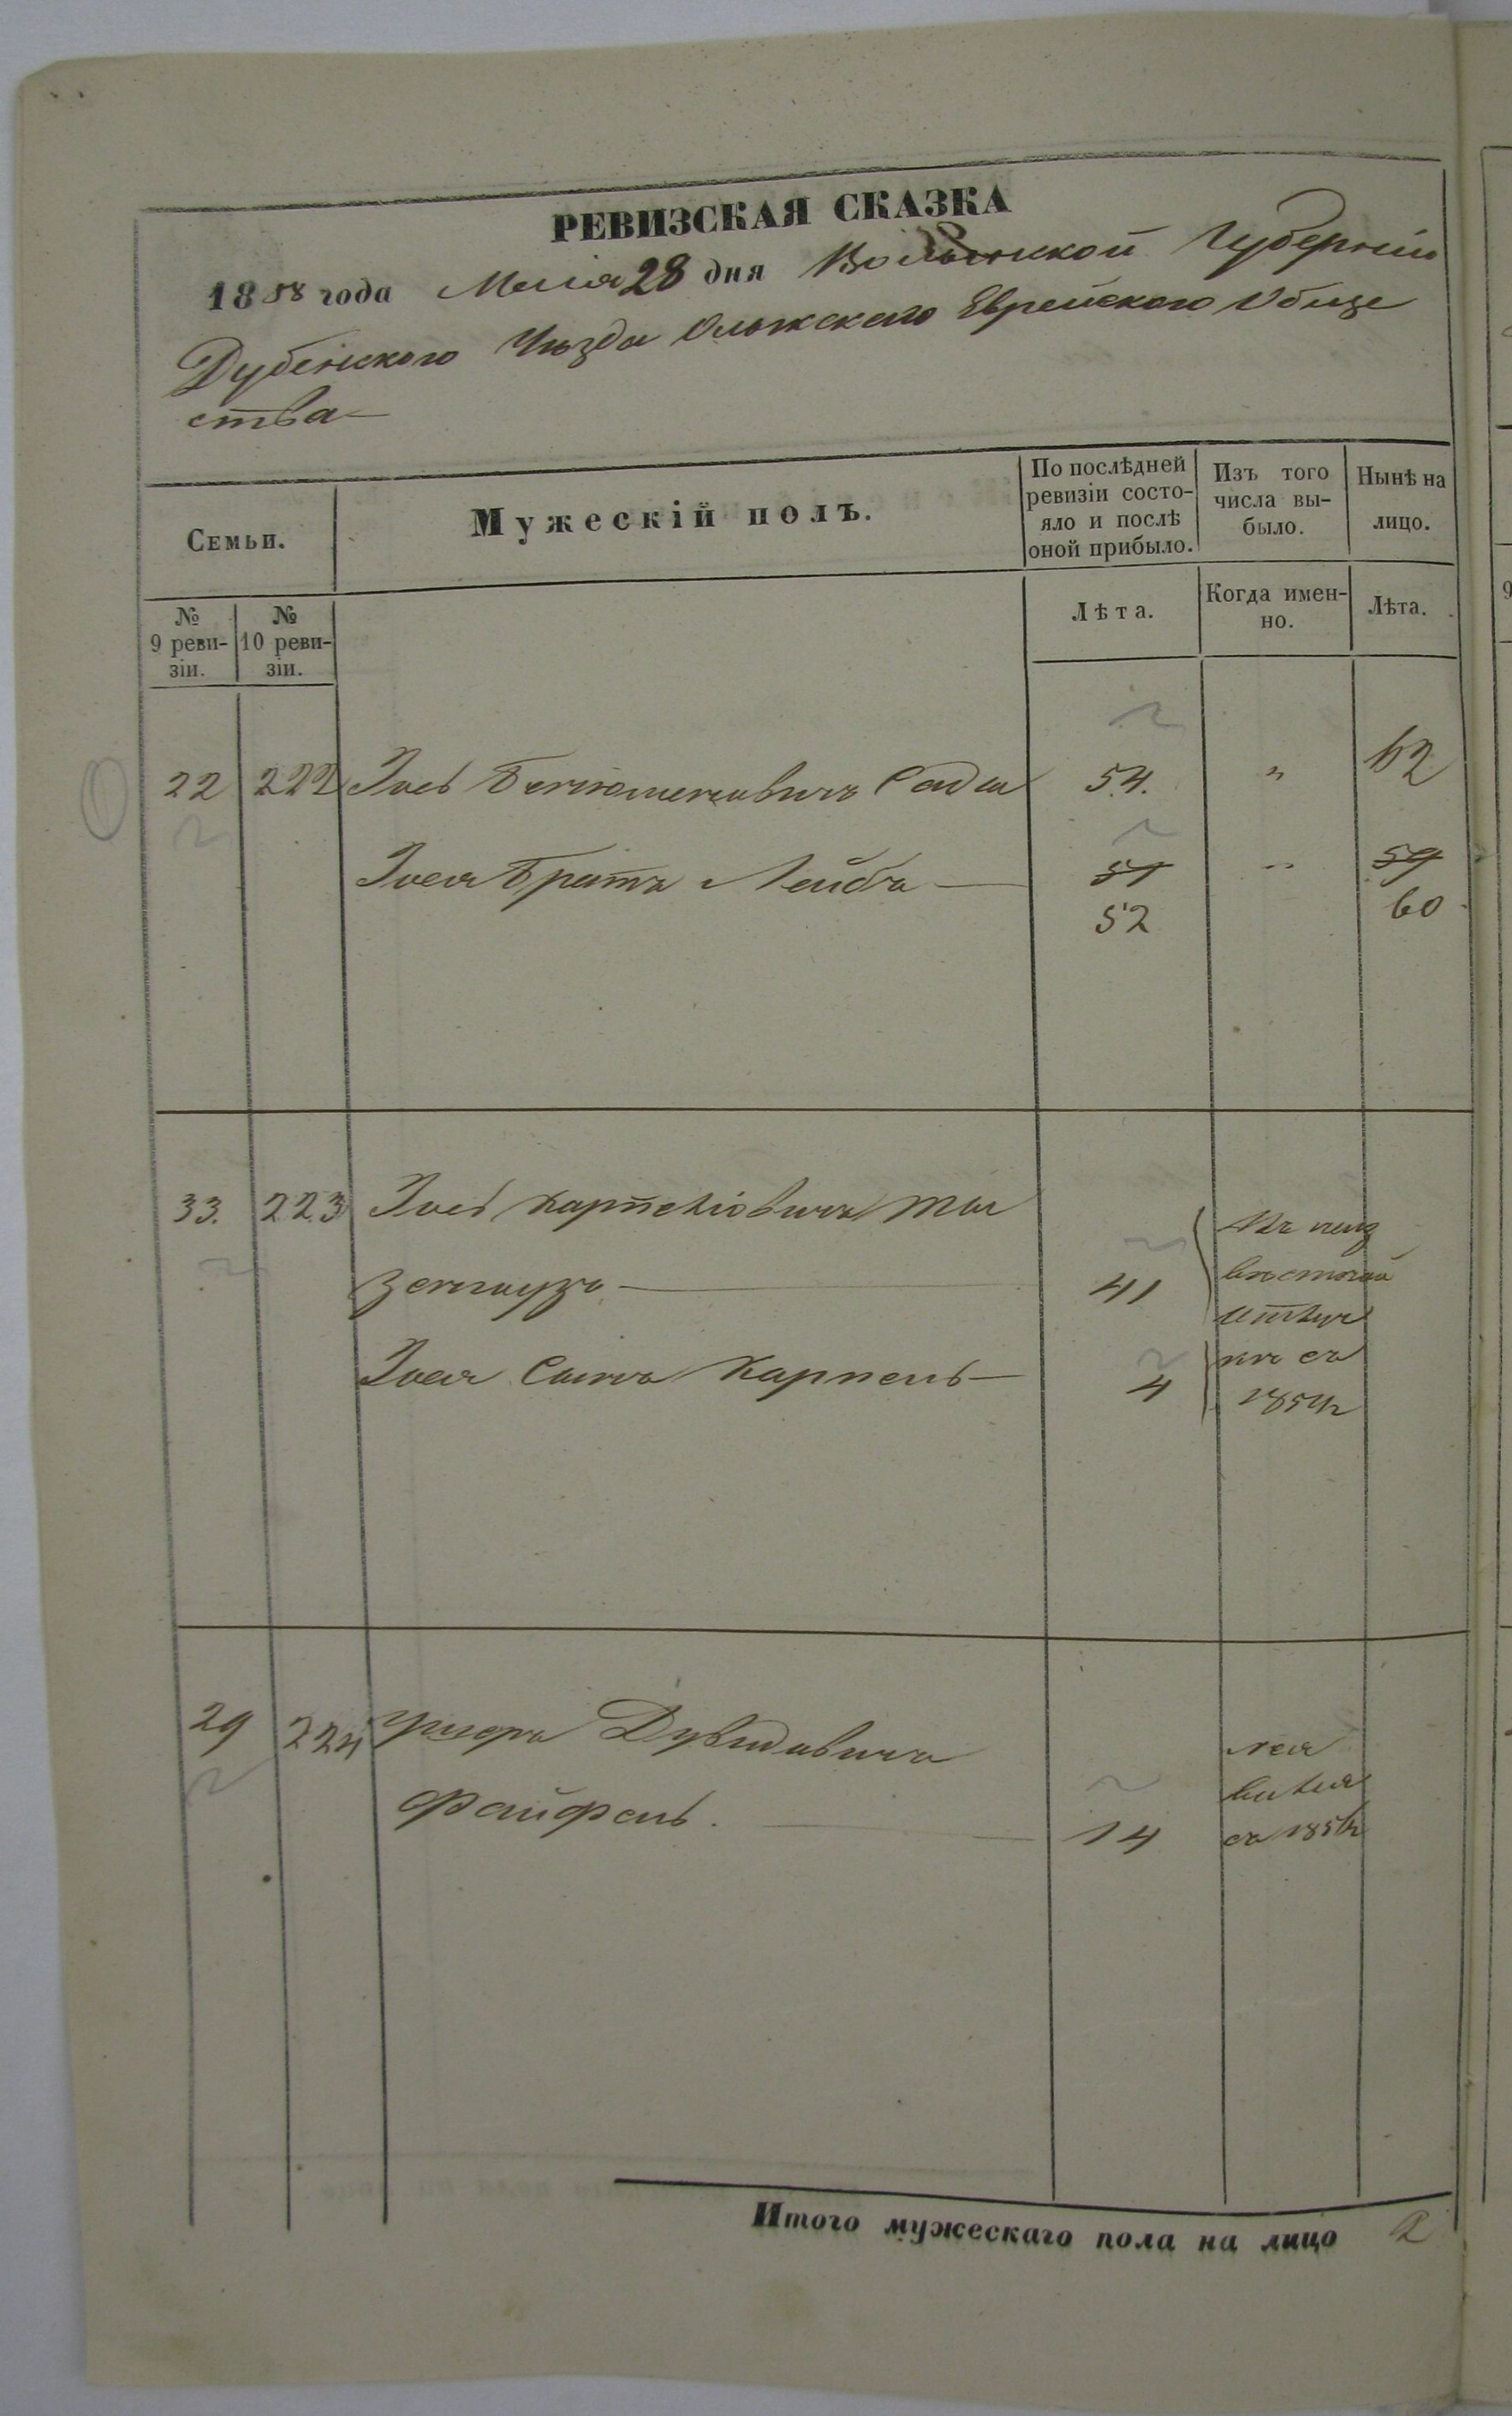 РЕВИЗСКАЯ СКАЗКА
1858 года Маія 28 дня Волынской Губерніи
Дубенского Уѣзда Олыкского Еврейского Обще
ства
Семьи.
Мужескій полъ.
По послѣдней ревизіи состо-
яло и послѣ
оной прибыло.
Изъ того
числа вы-
было.
Нынѣ на
лицо.
№
9 реви-
зіи.
№
10 реви-
зіи.
Лѣта.
Когда имен-
но.
Лѣта.
22 222 Іось 54. " 62
Іося братъ Лейба 51 " 59
52 60
33. 223 Іось Карпеліовичъ
41
Іося Сынъ Карпель 4
Въ неиз
вѣстной
отлуч
кѣ съ
29 224 Давидовичъ
Файфель. 14
не я
вился
съ
Итого мужескаго пола на лицо 2